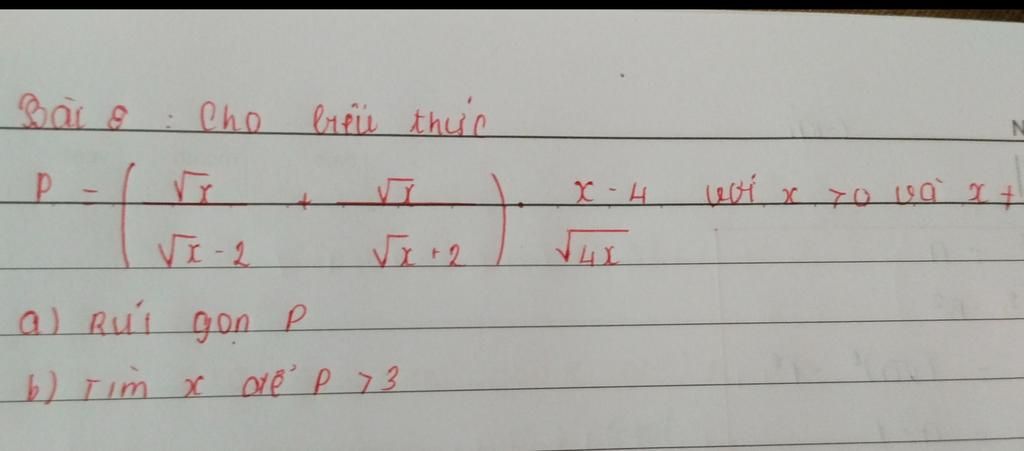 Bài 8 : Cho biểu thức
P = ( √x / √x - 2 + √x / √x + 2 ) . x - 4 / √4x với x > 0 và x ≠
a) Rút gọn P
b) Tìm x để P > 3